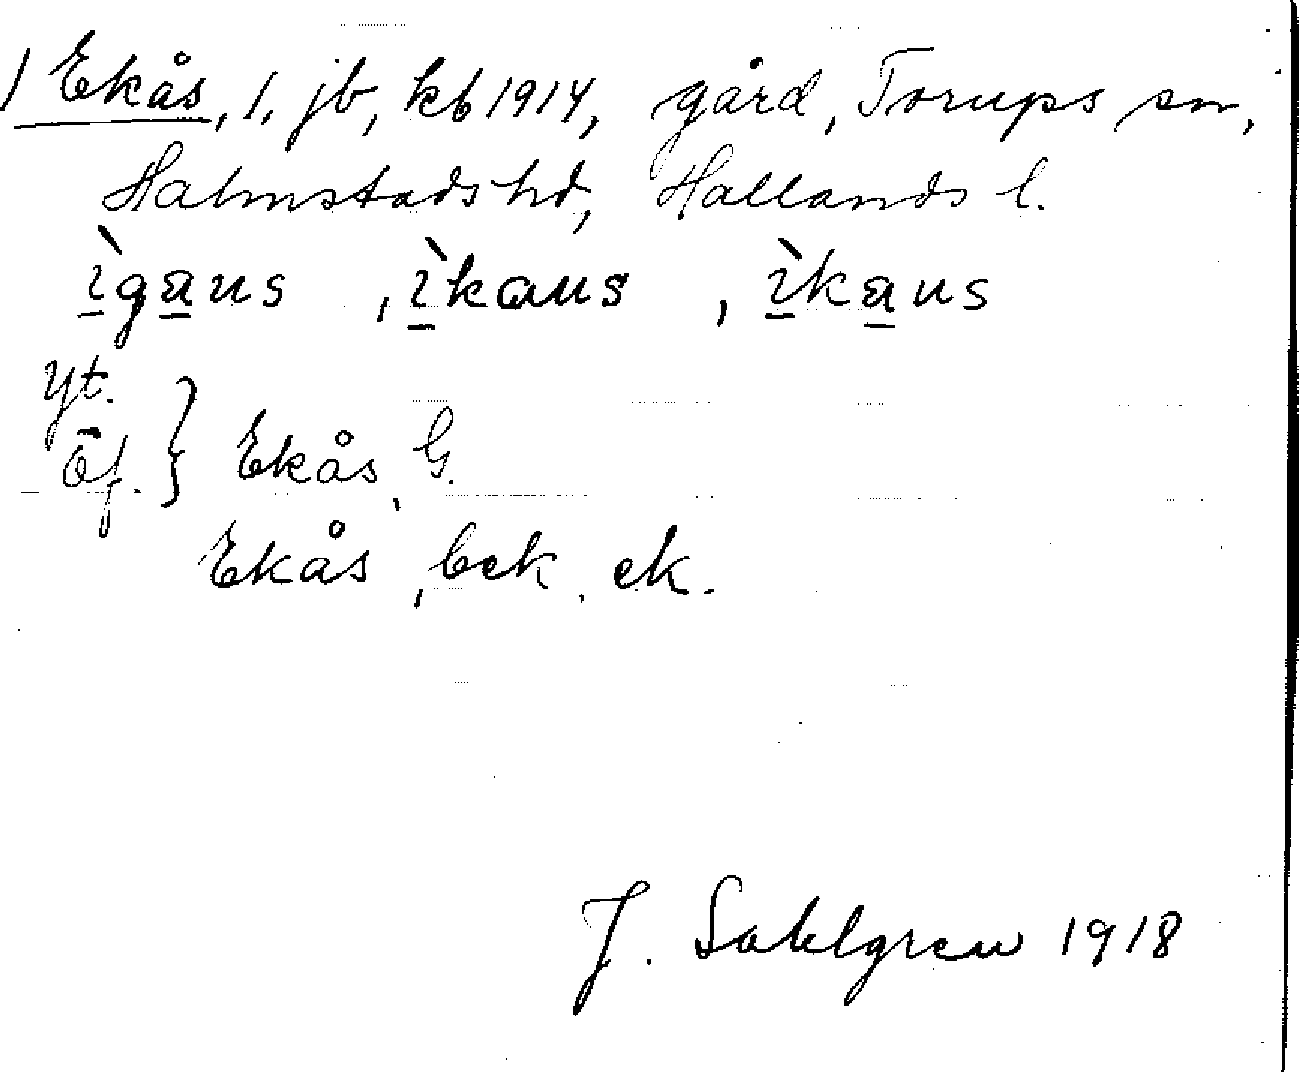 1 Ekås, 1, jb, kb 1914, gård, Torups sn,
Halmstads hd, Hallands l.
ìgaus , ìkaus , ìkaus
Yt.
Öf. } Ekås, G.
Ekås, bek. ek.
J. Sahlgren 1918